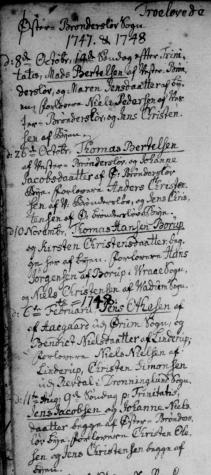 Troelovede
Øster Brønderslev Sogn
1747. & 1748
D: 8de Octobr, 19de Søndag efter Trini-
tatis, Mads Bertelsen af Vester Brøn-
derslev, og Maren Jensdaatter af By-
en forlovere Niels Pedersen af Ves-
ter Brønderslev, og Jens Christen-
sen af Byen.
D: 26de Octobr. Thomas Bertelsen
af Vester Brønderslev og Johanne
Jacobsdaatter af Ør: Brønderslev
Bÿe. forlovere Anders Christen-
sen af V. Brønderslev, og Jens Chris-
tensen af Ør: Brønderslev Bÿe.
D. 10 Novembr, Thomas Hansen Borup
og Kirsten Christensdaatter, beg-
ge her af Byen. forlovere Hans
Jørgensen af Borup, Wraae Sogn,
og Niels Christensen af Hadum Sogn.
1748
D: 6te Februarii Jens Othesen af
Aaegaard udj Ørum Sogn, og
Benedict Nielsdaatter af Linderup,
forlovere Niels Nielsen af
Linderup, Christen Simonsen
Dronninglund Sogn.
D: 11te Aug. 9de Søndag p. Trinitatis,
Jens Jacobsen og Johanne Niels-
daatter begge af Øster Brønders-
lev bÿe. forlovere Christen Ole-
sen og Jens Christensen begge af
Byen.